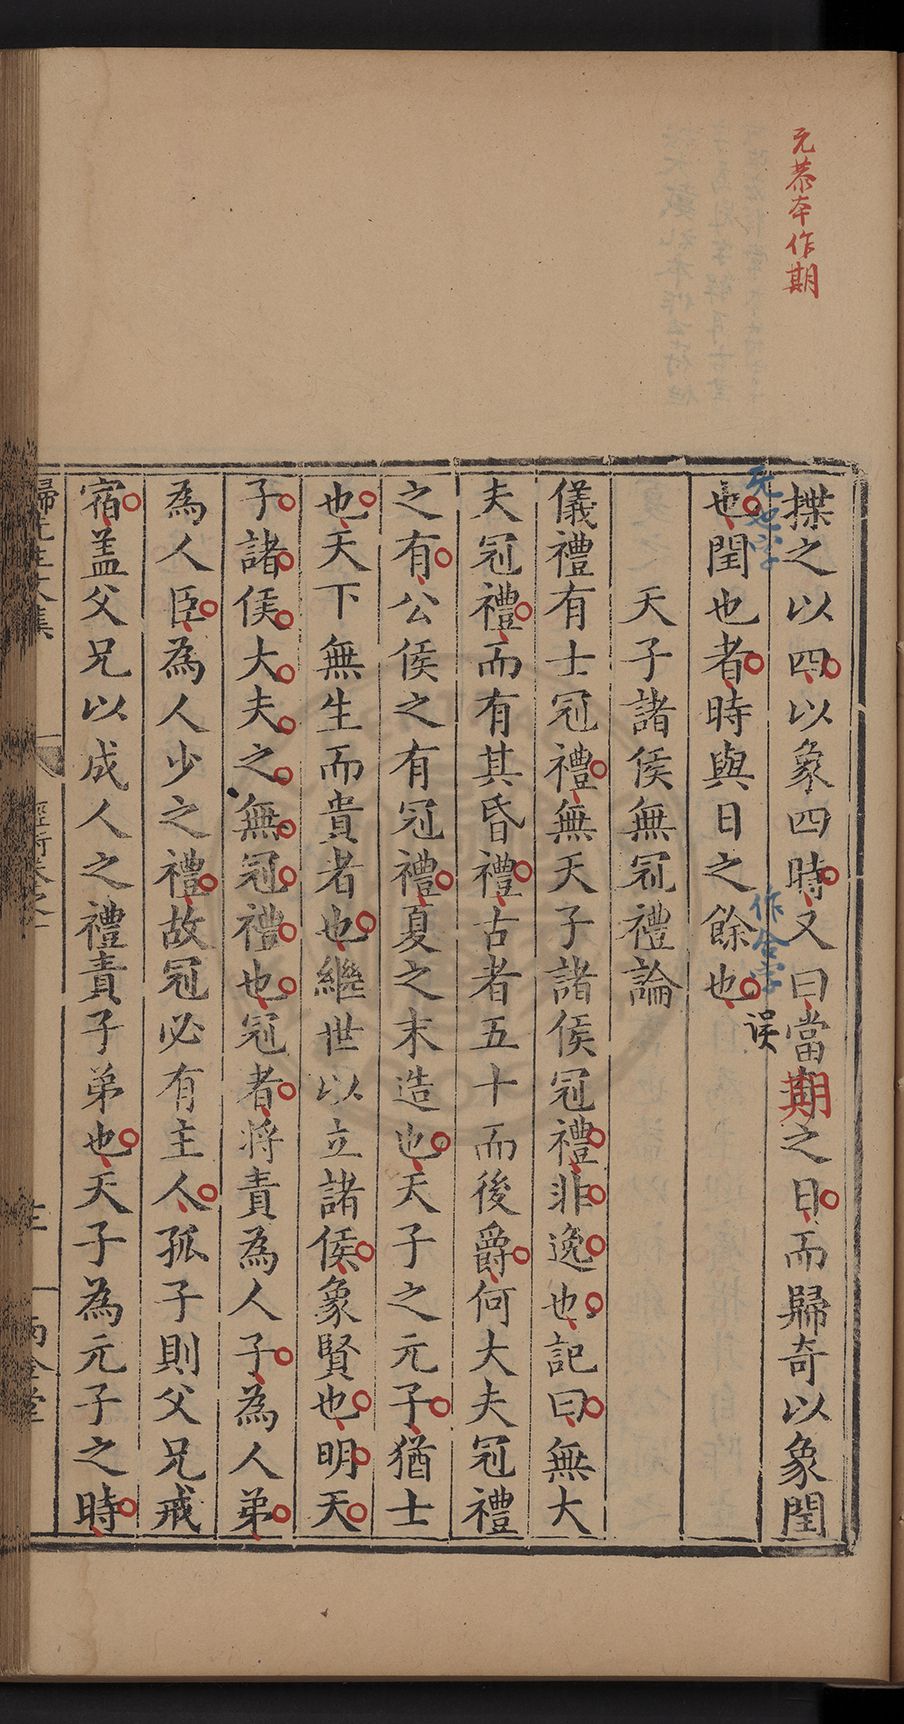 元恭本作期
揲之以四以象四時又曰當期之日而歸奇以象閏
也閏也者時與日之餘也
无也字
作合字
误
天子諸侯無冠禮論
儀禮有士冠禮無天子諸侯冠禮非逸也記曰無大
夫冠禮而有其昏禮古者五十而後爵何大夫冠禮
之有公侯之有冠禮夏之末造也天子之元子猶士
也天下無生而貴者也繼世以立諸侯象賢也明天
子諸侯大夫之無冠禮也冠者將責為人子為人弟
為人臣為人少之禮故冠必有主人孤子則父兄戒
宿盖父兄以成人之禮責子弟也天子為元子之時